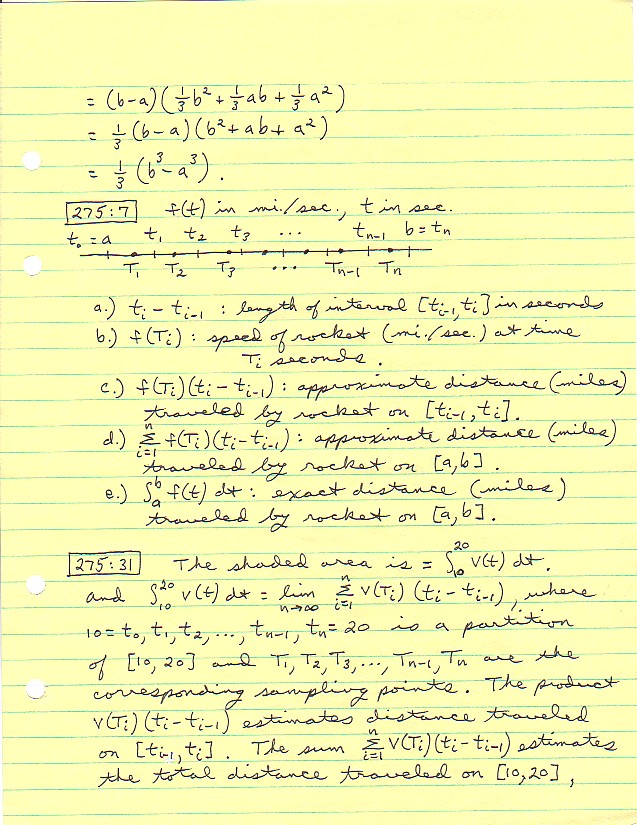 = (b-a)(⅓b² + ⅓ab + ⅓a²)
= ⅓(b-a)(b² + ab + a²)
= ⅓(b³ - a³).
275:7 f(t) in mi./sec., t in sec.
t₀ = a t₁ t₂ t₃ ... tₙ₋₁ b = tₙ
T₁ T₂ T₃ ... Tₙ₋₁ Tₙ
a.) tᵢ - tᵢ₋₁ : length of interval [tᵢ₋₁, tᵢ] in seconds
b.) f(Tᵢ) : speed of rocket (mi./sec.) at time
Tᵢ seconds.
c.) f(Tᵢ)(tᵢ - tᵢ₋₁) : approximate distance (miles)
traveled by rocket on [tᵢ₋₁, tᵢ].
d.) ∑ᵢ₌₁ⁿ f(Tᵢ)(tᵢ - tᵢ₋₁) : approximate distance (miles)
traveled by rocket on [a,b].
e.) ∫ₐᵇ f(t) dt : exact distance (miles)
traveled by rocket on [a,b].
275:31 The shaded area is = ∫₁₀²⁰ V(t) dt.
and ∫₁₀²⁰ V(t) dt = lim n→∞ ∑ᵢ₌₁ⁿ V(Tᵢ) (tᵢ - tᵢ₋₁), where
10 = t₀, t₁, t₂, ..., tₙ₋₁, tₙ = 20 is a partition
of [10, 20] and T₁, T₂, T₃, ..., Tₙ₋₁, Tₙ are the
corresponding sampling points. The product
V(Tᵢ)(tᵢ - tᵢ₋₁) estimates distance traveled
on [tᵢ₋₁, tᵢ]. The sum ∑ᵢ₌₁ⁿ V(Tᵢ)(tᵢ - tᵢ₋₁) estimates
the total distance traveled on [10,20],